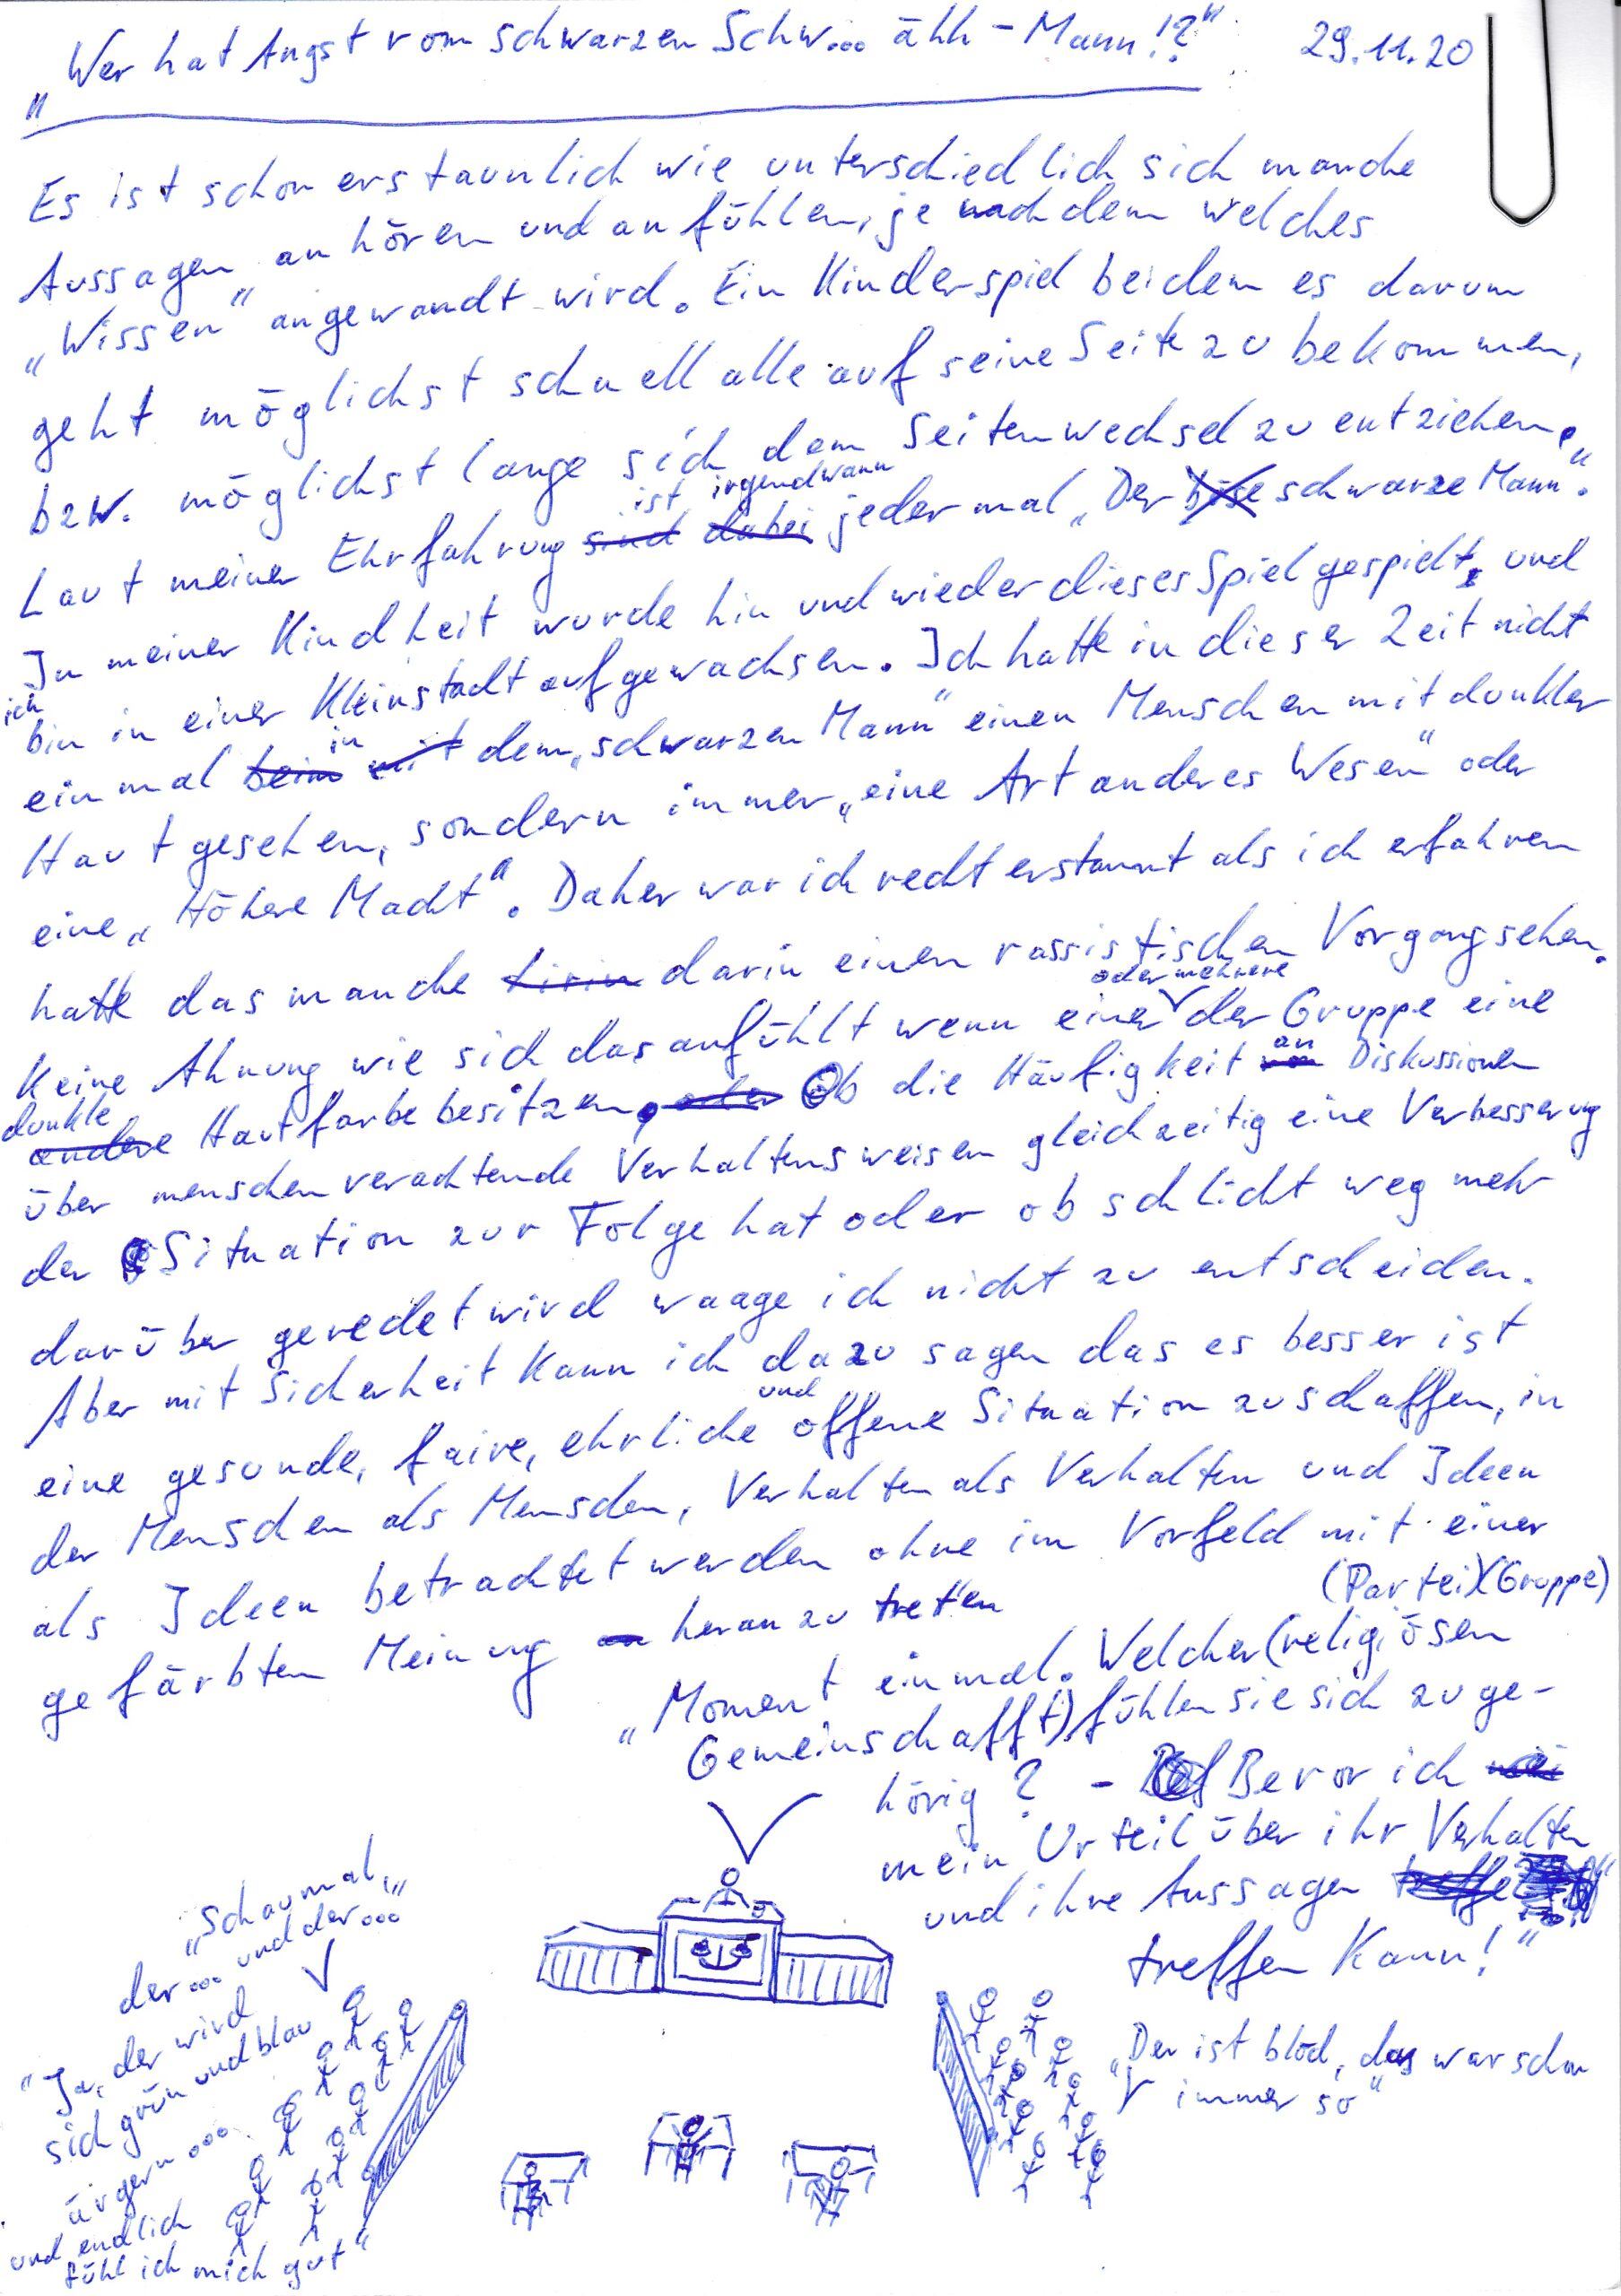 „Wer hat Angst vom schwarzen Schw... ähh - Mann!?" 29.11.20
Es ist schon erstaunlich wie unterschiedlich sich manche
Aussagen anhören und anfühlen, je nachdem welches
„Wissen" angewandt wird. Ein Kinderspiel bei dem es darum
geht möglichst schnell alle auf seine Seite zu bekommen,
bzw. möglichst lange sich dem Seitenwechsel zu entziehen.
Laut meiner Ehrfahrung sind dabei ist irgendwann jeder mal „Der böse schwarze Mann".
In meiner Kindheit wurde hin und wieder dieses Spiel gespielt, und
ich bin in einer Kleinstadt aufgewachsen. Ich hatte in dieser Zeit nicht
einmal beim mit in dem „schwarzen Mann" einen Menschen mit dunkler
Haut gesehen, sondern immer „eine Art anderes Wesen" oder
eine „Höhere Macht". Daher war ich recht erstaunt als ich erfahren
hatte das manche darin einen rassistischen Vorgang sehen.
Keine Ahnung wie sich das anfühlt wenn einer oder mehrere der Gruppe eine
andere dunkle Hautfarbe besitzen, oder Ob die Häufigkeit an Diskussionen
über menschenverachtende Verhaltensweisen gleichzeitig eine Verbesserung
der Situation zur Folge hat oder ob schlicht weg mehr
darüber geredet wird waage ich nicht zu entscheiden.
Aber mit Sicherheit kann ich dazu sagen das es besser ist
eine gesunde, faire, ehrliche und offene Situation zu schaffen, in
der Menschen als Menschen, Verhalten als Verhalten und Ideen
als Ideen betrachtet werden ohne im Vorfeld mit einer
gefärbten Meinung heran zu treten
(Partei)(Gruppe)
„Moment einmal. Welcher (religiösen
Gemeinschafft) fühlen sie sich zuge-
hörig? - Bevor ich
mein Urteil über ihr Verhalten
und ihre Aussagen treffe
treffen kann!"
„Schau mal,"
der... und der...
„Ja, der wird
sich grün und blau
ärgern...
und endlich
fühl ich mich gut"
„Der ist blöd, das war schon
immer so"